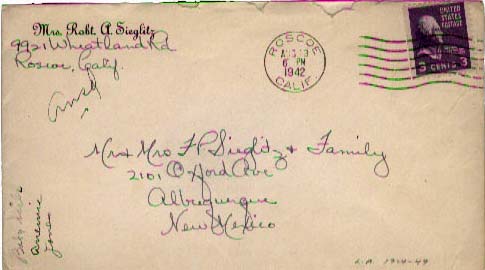 Mrs. Robt. A. Sieglitz
9921 Wheatland Rd
Roscoe, Calif.
ROSCOE
AUG 13
6 PM
1942
CALIF.
UNITED
STATES
POSTAGE
3 CENTS 3
Mr & Mrs F P Sieglitz & Family
2101 Oxford Ave
Albuquerque
New Mexico
anemic